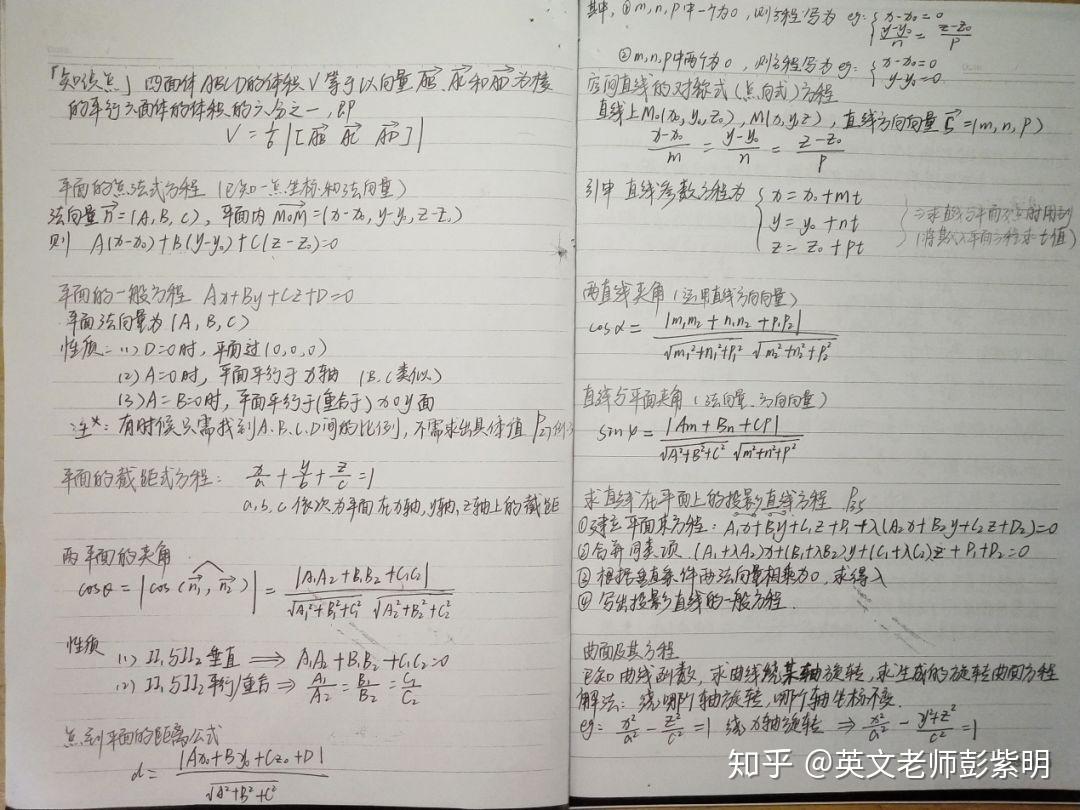 「知识点」 四面体ABCD的体积V等于以向量AB→、AC→和AD→为棱
的平行六面体的体积的六分之一，即
V = 1/6 |[AB→ AC→ AD→]|
平面的点法式方程（已知一点坐标和法向量）
法向量n→=(A,B,C)，平面内M₀M→=(x-x₀,y-y₀,z-z₀)
则 A(x-x₀)+B(y-y₀)+C(z-z₀)=0
平面的一般方程 Ax+By+Cz+D=0
平面法向量为(A,B,C)
性质：(1) D=0时，平面过(0,0,0)
(2) A=0时，平面平行于x轴 (B.C类似)
(3) A=B=0时，平面平行于(重合于) xoy面
注*：有时候只需找到A.B.C.D间的比例，不需求出具体值
平面的截距式方程： x/a + y/b + z/c = 1
a,b,c依次为平面在x轴,y轴,z轴上的截距
两平面的夹角
cosθ = |cos(n₁→, n₂→)| = |A₁A₂+B₁B₂+C₁C₂| / √A₁²+B₁²+C₁² √A₂²+B₂²+C₂²
性质 (1) Π₁与Π₂垂直 ⟹ A₁A₂+B₁B₂+C₁C₂=0
(2) Π₁与Π₂平行/重合 ⟹ A₁/A₂ = B₁/B₂ = C₁/C₂
点到平面的距离公式
d = |Ax₀+By₀+Cz₀+D| / √A²+B²+C²
其中，①m,n,p中一个为0，则方程写为 eg: { x-x₀=0
(y-y₀)/n = (z-z₀)/p
②m,n,p中两个为0，则方程写为 eg: { x-x₀=0
y-y₀=0
空间直线的对称式(点向式)方程
直线上M₀(x₀,y₀,z₀)，M(x,y,z)，直线方向向量s→=(m,n,p)
(x-x₀)/m = (y-y₀)/n = (z-z₀)/p
引申 直线参数方程为 { x = x₀+mt
y = y₀+nt
z = z₀+pt
⇒求直线与平面交点时用到
(将其代入平面方程求t值)
两直线夹角(运用直线方向向量)
cosα = |m₁m₂+n₁n₂+p₁p₂| / √m₁²+n₁²+p₁² √m₂²+n₂²+p₂²
直线与平面夹角(法向量、方向向量)
sinφ = |Am+Bn+Cp| / √A²+B²+C² √m²+n²+p²
求直线在平面上的投影直线方程 P35
①建立平面束方程：A₁x+B₁y+C₁z+D₁+λ(A₂x+B₂y+C₂z+D₂)=0
②合并同类项 (A₁+λA₂)x+(B₁+λB₂)y+(C₁+λC₂)z+D₁+D₂=0
③根据垂直条件两法向量相乘为0，求得λ
④写出投影直线的一般方程.
曲面及其方程
已知曲线函数，求曲线绕某轴旋转，求生成的旋转曲面方程
解法：绕哪个轴旋转，哪个轴坐标不变.
eg: x²/a² - z²/c² = 1 绕x轴旋转 ⟹ x²/a² - (y²+z²)/c² = 1
知乎 @英文老师彭紫明